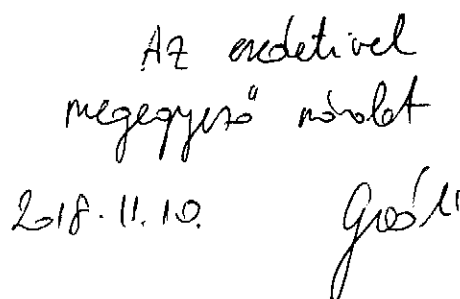 Az eredetivel
megegyező másolat
2018.11.10.